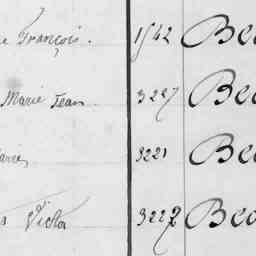 François. 1542 Bea
Marie Jean 3227 Bea
3221 Bea
Victor 3222 Bea